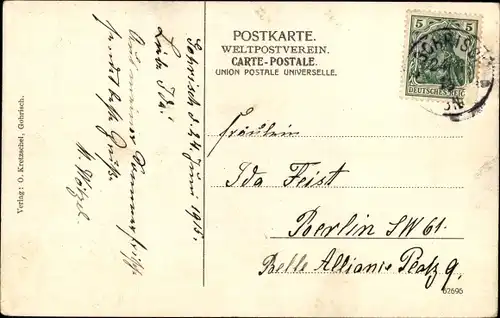 POSTKARTE.
WELTPOSTVEREIN.
CARTE-POSTALE.
UNION POSTALE UNIVERSELLE.
5 5
DEUTSCHES REICH
Gohrisch d. 24 Juni 1915.
Liebe Ida!
Aus meiner Sommerfrisch
sendet beste Grüße.
M. Wätzel.
Fräulein
Ida Feist
Berlin SW 61.
Belle Alliance Platz 9.
Verlag: O. Kretzschel, Gohrisch.
62695